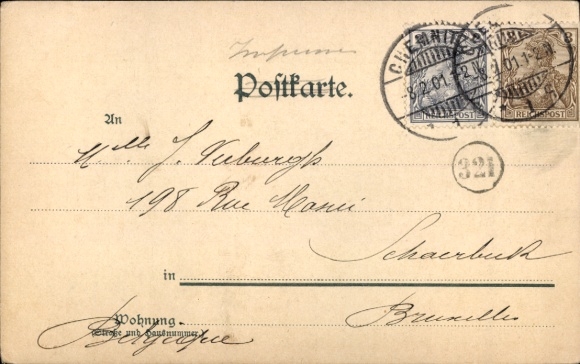 Imprimé
CHEMNITZ
8.2.01.1-2.N.
REICHSPOST
3
REICHSPOST
Postkarte.
An
Mlle J.
321
198 Rue
Schaerbeek
in
Bruxelles
Wohnung
(Straße und Hausnummer.)
Belgique